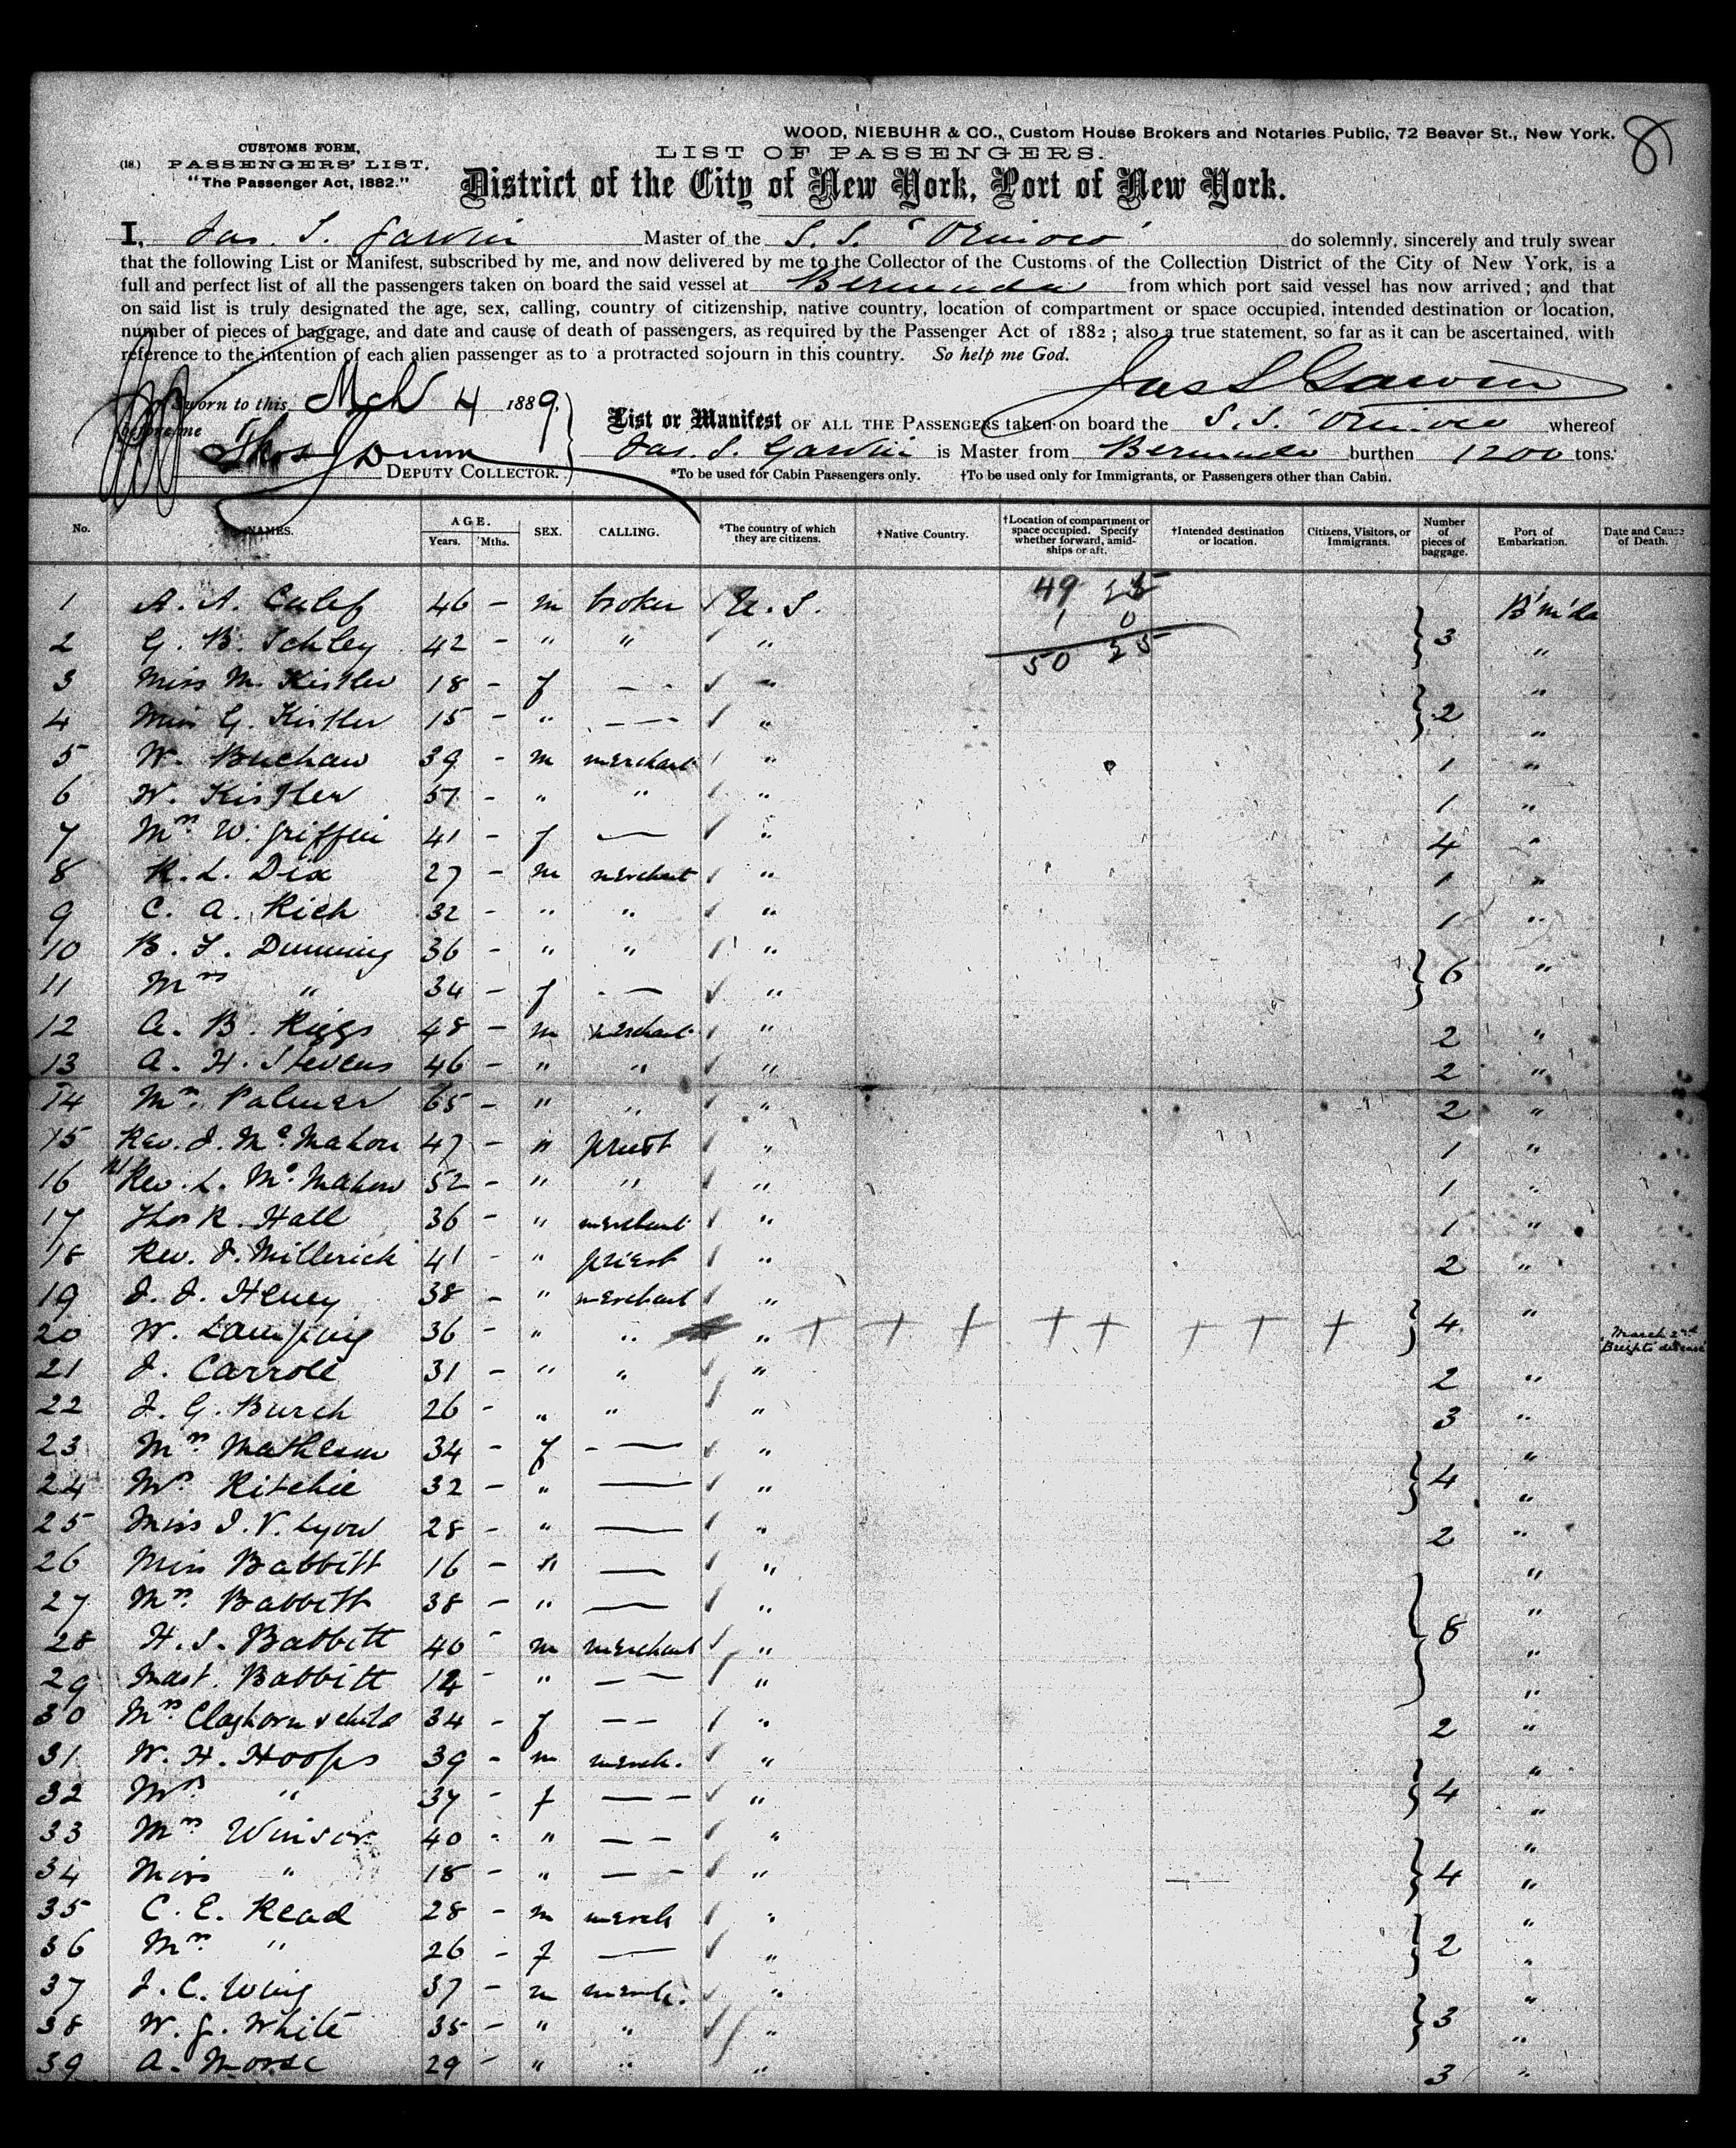 WOOD, NIEBUHR & CO., Custom House Brokers and Notaries Public, 72 Beaver St., New York.
8
CUSTOMS FORM,
(18.) PASSENGERS' LIST.
"The Passenger Act, 1882."
LIST OF PASSENGERS.
District of the City of New York, Port of New York.
I, Jas. S. Garvin Master of the S. S. "Orinoco" do solemnly, sincerely and truly swear
that the following List or Manifest, subscribed by me, and now delivered by me to the Collector of the Customs of the Collection District of the City of New York, is a
full and perfect list of all the passengers taken on board the said vessel at Bermuda from which port said vessel has now arrived; and that
on said list is truly designated the age, sex, calling, country of citizenship, native country, location of compartment or space occupied, intended destination or location,
number of pieces of baggage, and date and cause of death of passengers, as required by the Passenger Act of 1882; also a true statement, so far as it can be ascertained, with
reference to the intention of each alien passenger as to a protracted sojourn in this country. So help me God.
Jas S Garvin
Sworn to this Mch 4 1889,
before me
Thos J Dunn
DEPUTY COLLECTOR.
List or Manifest OF ALL THE PASSENGERS taken on board the S. S. "Orinoco" whereof
Jas. S. Garvin is Master from Bermuda burthen 1200 tons.
*To be used for Cabin Passengers only. †To be used only for Immigrants, or Passengers other than Cabin.
No. NAMES. AGE. Years. Mths. SEX. CALLING. *The country of which they are citizens. †Native Country. †Location of compartment or space occupied. Specify whether forward, amidships or aft. †Intended destination or location. Citizens, Visitors, or Immigrants. Number of pieces of baggage. Port of Embarkation. Date and Cause of Death.
49
1 0
50 35
1 A. A. 46 - m broker U. S. B'm'da
2 G. B. Schley 42 - " " " 3 "
3 Miss M. Kistler 18 - f — " "
4 Miss G. Kistler 15 - " — " 2 "
5 W. 39 - m merchant " 1 "
6 W. Kistler 57 - " " " 1 "
7 Mrs W. Griffin 41 - f — " 4 "
8 R. L. Dix 27 - m merchant " 1 "
9 C. A. Rich 32 - " " " 1 "
10 B. F. Dunning 36 - " " " 6 "
11 Mrs " 34 - f — "
12 A. B. Riggs 48 - m merchant " 2 "
13 A. H. Stevens 46 - " " " 2 "
14 Mr. Palmer 65 - " " " 2 "
15 Rev. J. McMahon 47 - " priest " 1 "
16 Rev. L. McMahon 52 - " " " 1 "
17 Thos R. Hall 36 - " merchant " 1 "
18 Rev. J. Millerick 41 - " priest " 2 "
19 J. J. Heney 38 - " merchant " "
20 W. Lamping 36 - " " " + + + + + + + + 4 March 2nd Bright's disease
21 J. Carroll 31 - " " " 2 "
22 J. G. Burch 26 - " " " 3 "
23 Mrs 34 - f — " "
24 Mrs Ritchie 32 - " — " 4 "
25 Miss J. V. Lyon 28 - " — " 2 "
26 Miss Babbitt 16 - " — " "
27 Mrs. Babbitt 38 - " — " "
28 H. S. Babbitt 40 - m merchant " 8 "
29 Mast. Babbitt - " — " "
30 Mrs Claghorn & child 34 - f — " 2 "
31 W. H. Hoops 39 - m merch. " "
32 Mrs " 37 - f — " 4 "
33 Mrs Winsor 40 - " — " "
34 Miss " 18 - " — " 4 "
35 C. E. Read 28 - m merch " "
36 Mrs " 26 - f — " 2 "
37 J. C. Wing 37 - m merch. " "
38 W. J. White 35 - " " " 3 "
39 A. Morse 29 - " " " 3 "